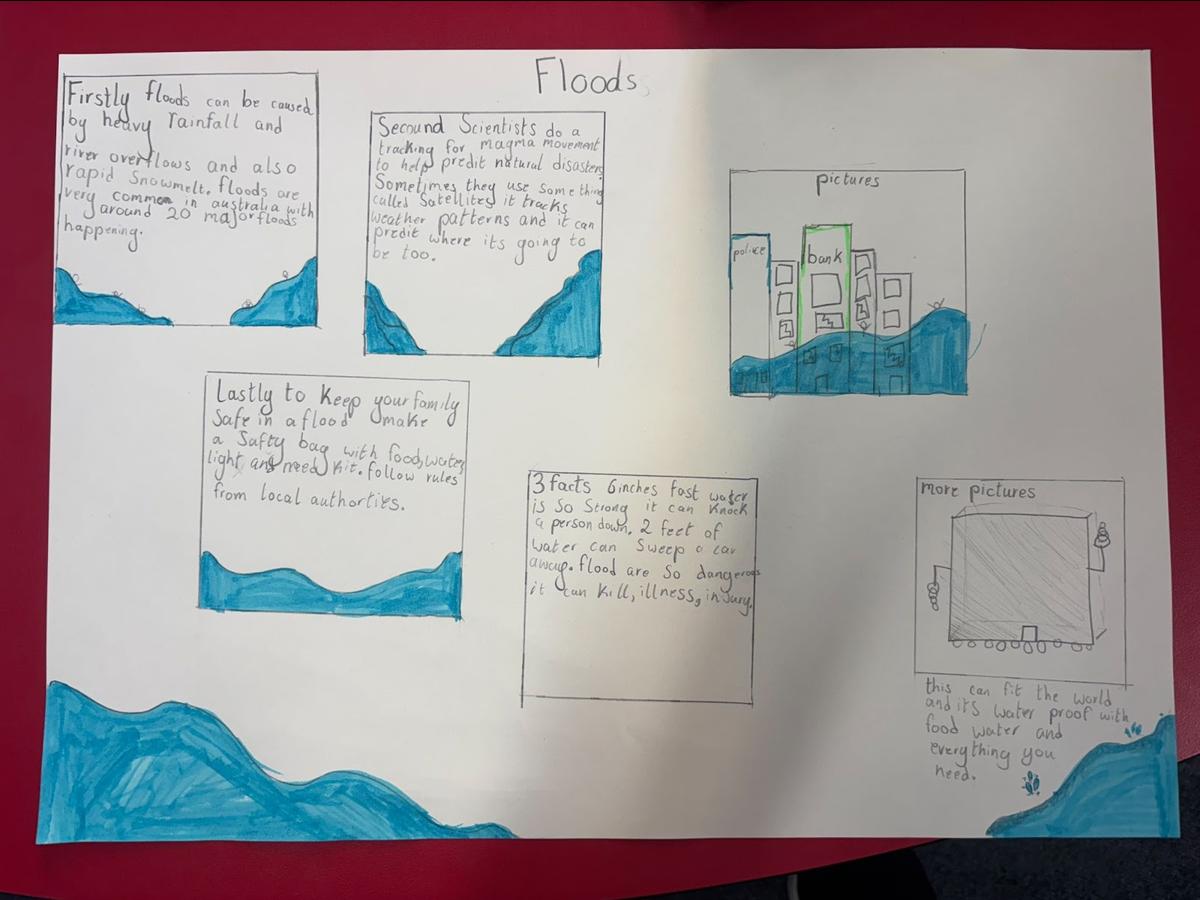 Floods
Firstly floods can be caused
by heavy rainfall and
river overflows and also
rapid Snowmelt. floods are
very common in australia with
around 20 major floods
happening.
Secound Scientists do a
tracking for magma movement
to help predit natural disasters
Sometimes they use some thing
called Satellites it tracks
weather patterns and it can
predit where its going to
be too.
pictures
police
bank
Lastly to keep your family
Safe in a flood make
a Safty bag with food, water,
light and need kit. follow rules
from local authorties.
3 facts 6inches fast water
is so Strong it can knock
a person down. 2 feet of
water can Sweep a car
away. flood are so dangerous
it can kill, illness, injury.
more pictures
this can fit the world
and its water proof with
food water and
everything you
need.